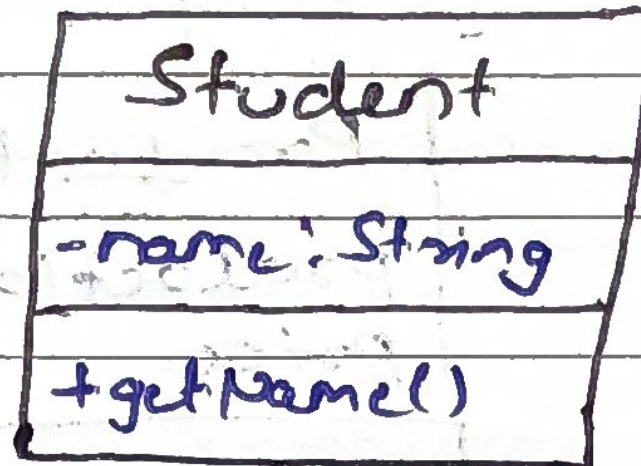 Student
-name: String
+getName()